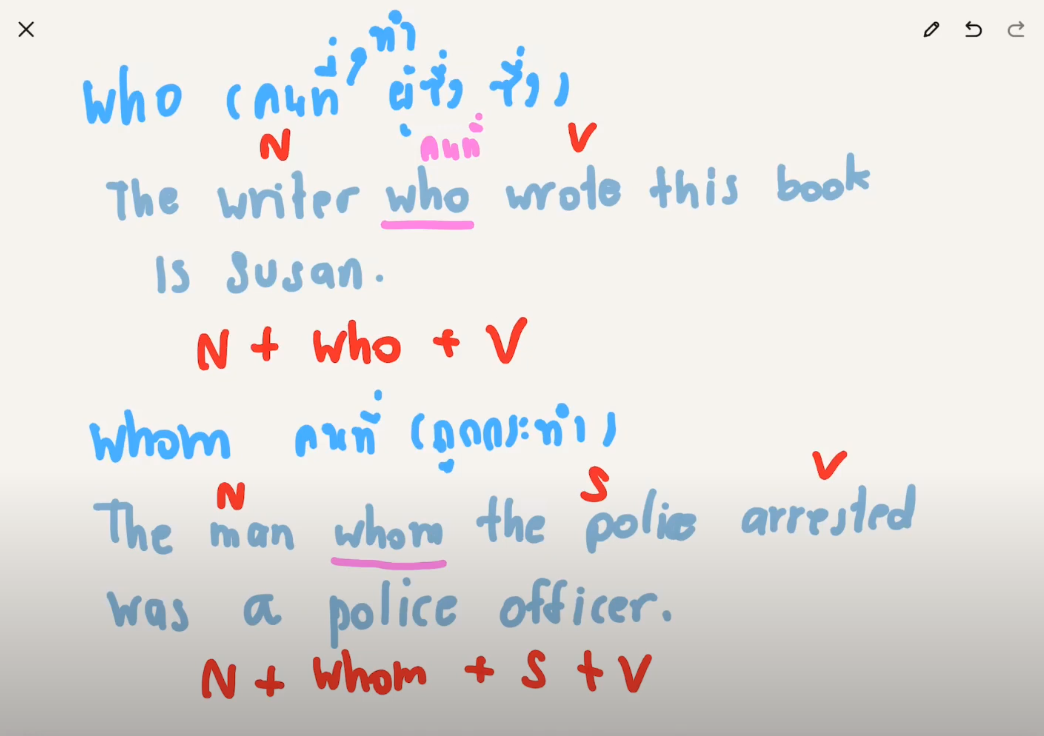 ทำ
who (คนที่, ผู้ซึ่ง, ซึ่ง)
N คนที่ V
The writer who wrote this book
is Susan.
N + who + V
whom คนที่ (ถูกกระทำ)
N S V
The man whom the police arrested
was a police officer.
N + whom + S + V